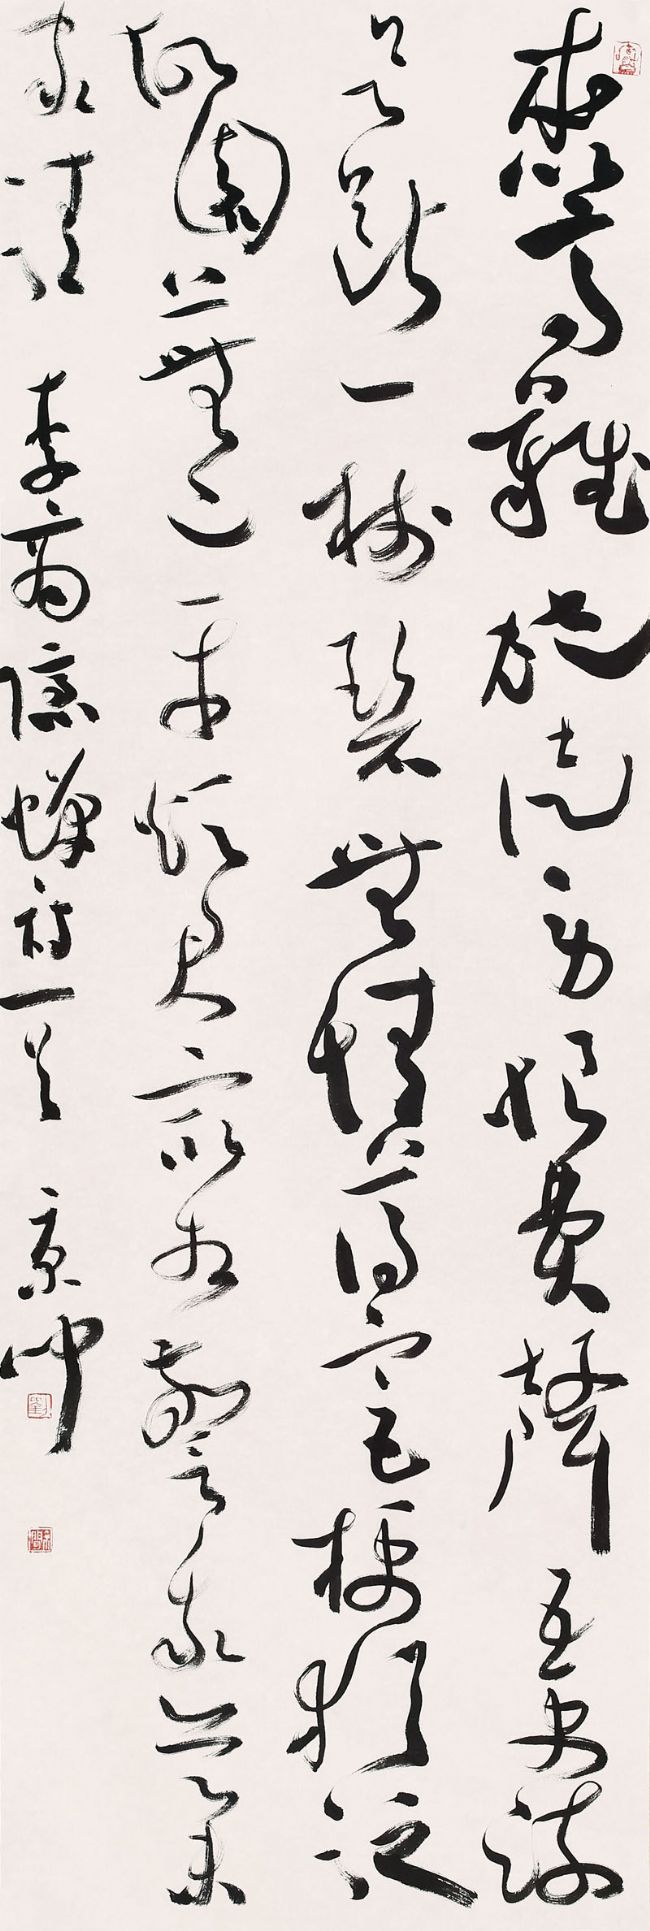 本以高難飽徒勞恨費聲五更疎
欲斷一樹碧無情薄宦梗猶泛
故園蕪已平煩君最相警我亦舉
家清 李商隱蟬詩一首